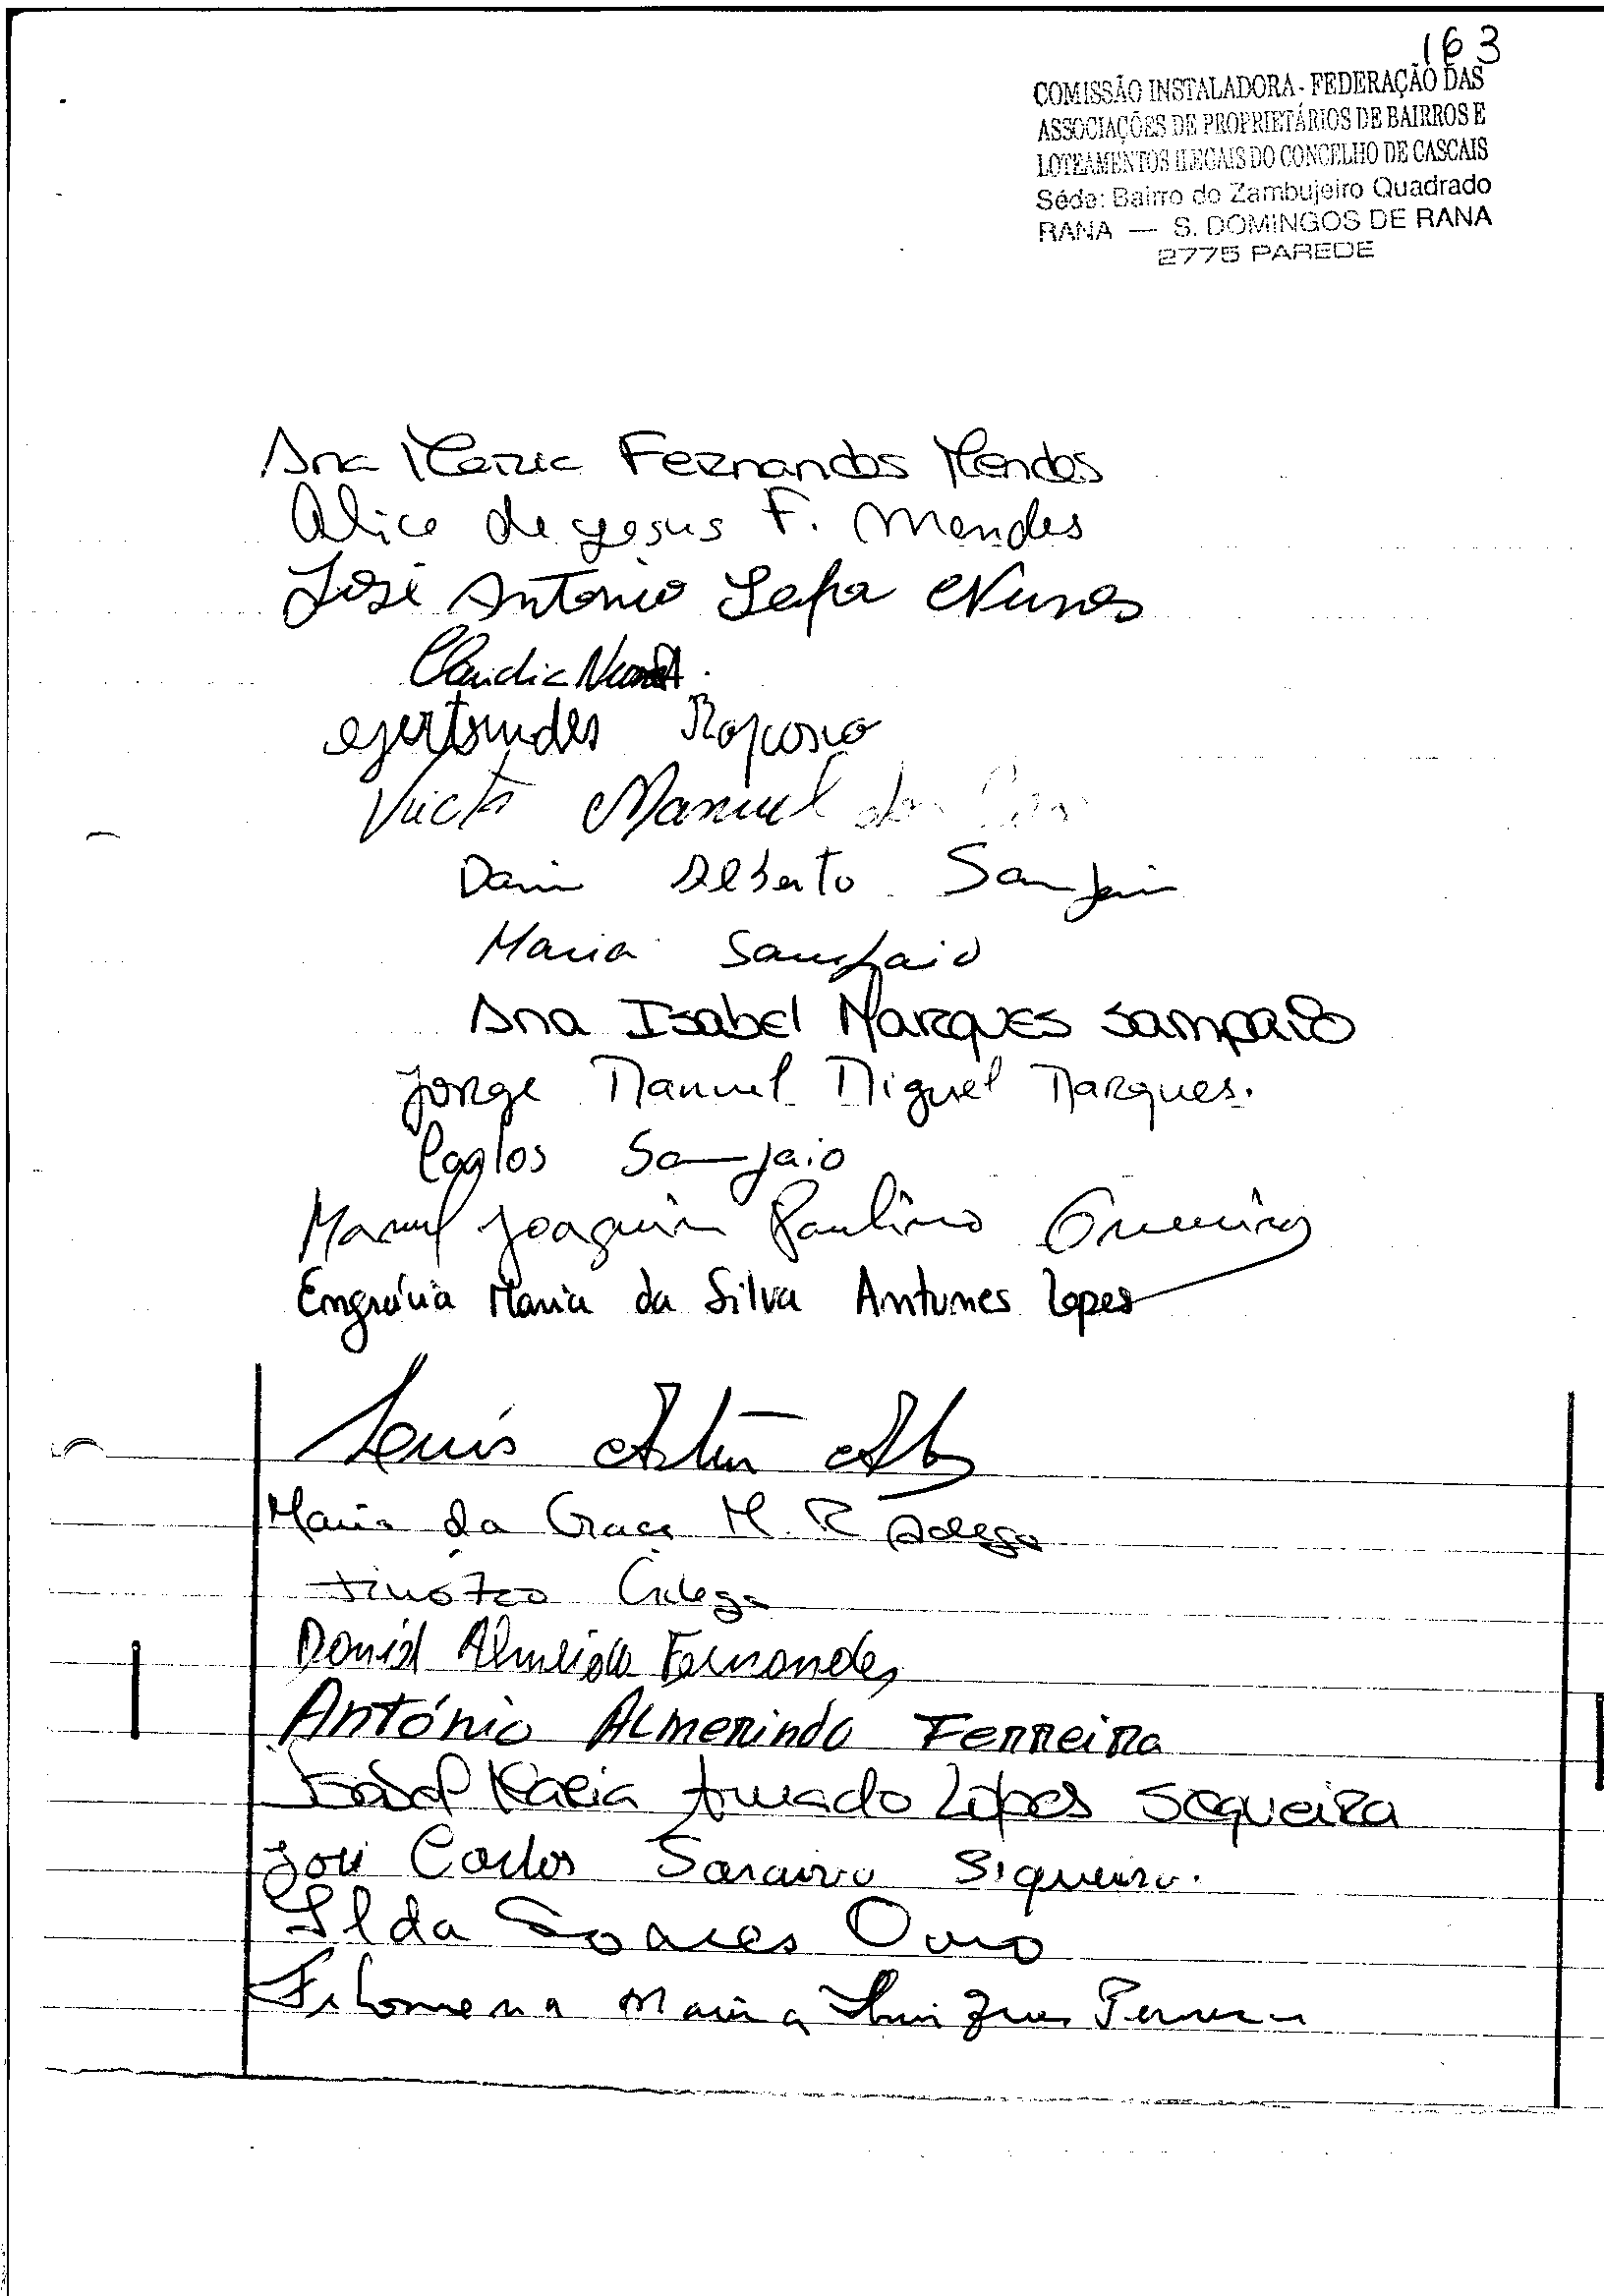 163
COMISSÃO INSTALADORA - FEDERAÇÃO DAS
ASSOCIAÇÕES DE PROPRIETÁRIOS DE BAIRROS E
LOTEAMENTOS ILEGAIS DO CONCELHO DE CASCAIS
Séde: Bairro do Zambujeiro Quadrado
RANA — S. DOMINGOS DE RANA
2775 PAREDE
Ana Maria Fernandes Mendes
Alice de Jesus F. Mendes
José António Lapa Nunes
Claudia Nunes
Gertrudes Raposo
Manuel
Alberto Sampaio
Maria Sampaio
Ana Isabel Marques Sampaio
Jorge Manuel Miguel Marques.
Carlos Sampaio
Manuel Joaquim Paulino
Engrácia Maria da Silva Antunes Lopes
Luís
Maria da Graça M. R.
Daniel Almeida Fernandes
António Almerindo Ferreira
Isabel Maria Amado Lopes Sequeira
José Carlos Saraiva Siqueira.
Ilda Soares
Filomena Maria